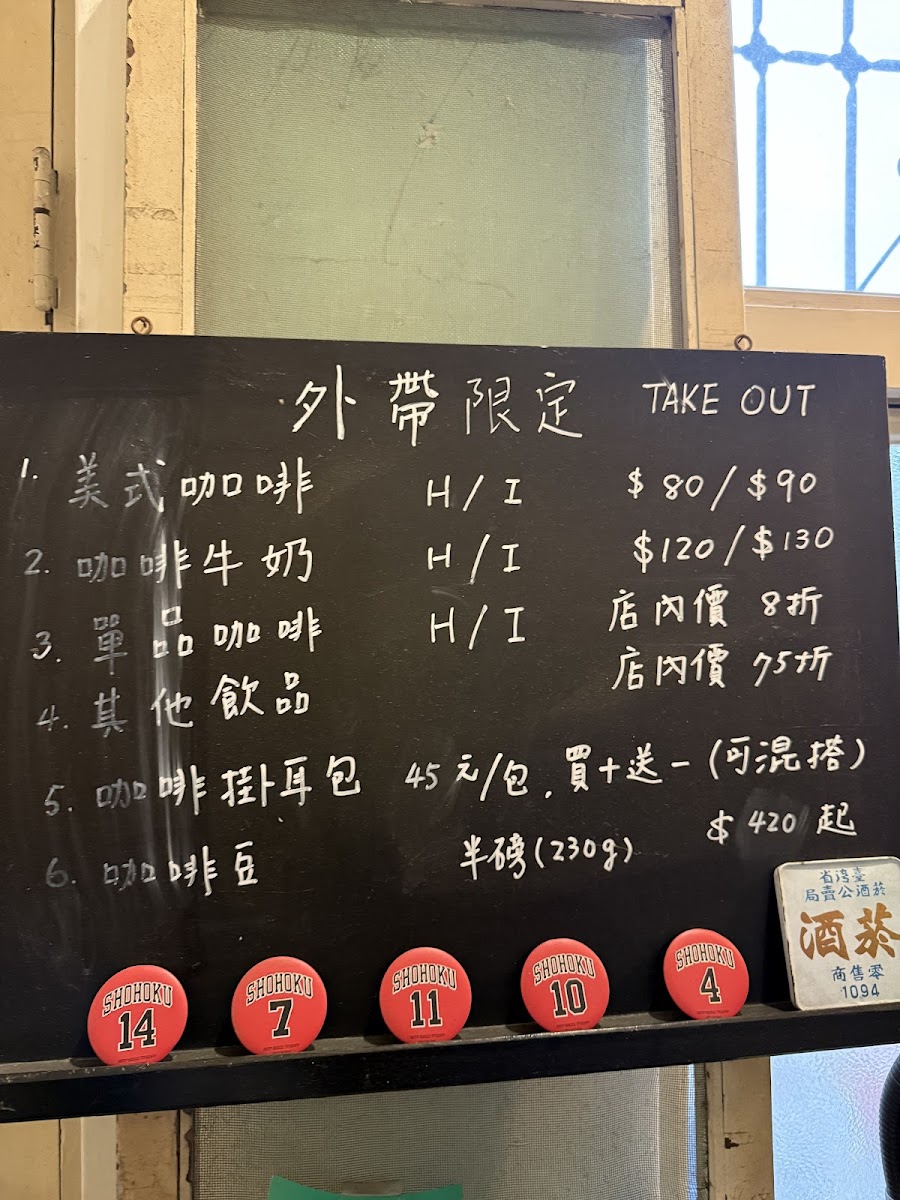 外帶限定 TAKE OUT
1. 美式咖啡 H/I $80/$90
2. 咖啡牛奶 H/I $120/$130
3. 單品咖啡 H/I 店內價 8折
4. 其他飲品 店內價 75折
5. 咖啡掛耳包 45元/包, 買十送一 (可混搭)
6. 咖啡豆 半磅(230g) $420起
臺灣省
菸酒公賣局
菸酒
零售商
1094
SHOHOKU
14
SHOHOKU
7
SHOHOKU
11
SHOHOKU
10
SHOHOKU
4